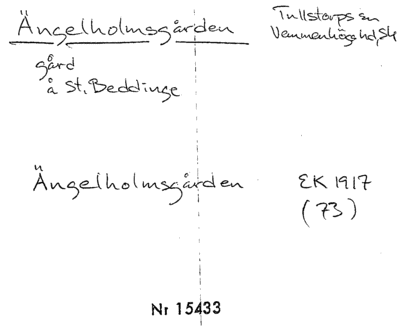 Ängelholmsgården
Tullstorps sn
Vemmenhögs hd, Sk
gård
å St. Beddinge
Ängelholmsgården
EK 1917
(73)
Nr 15433